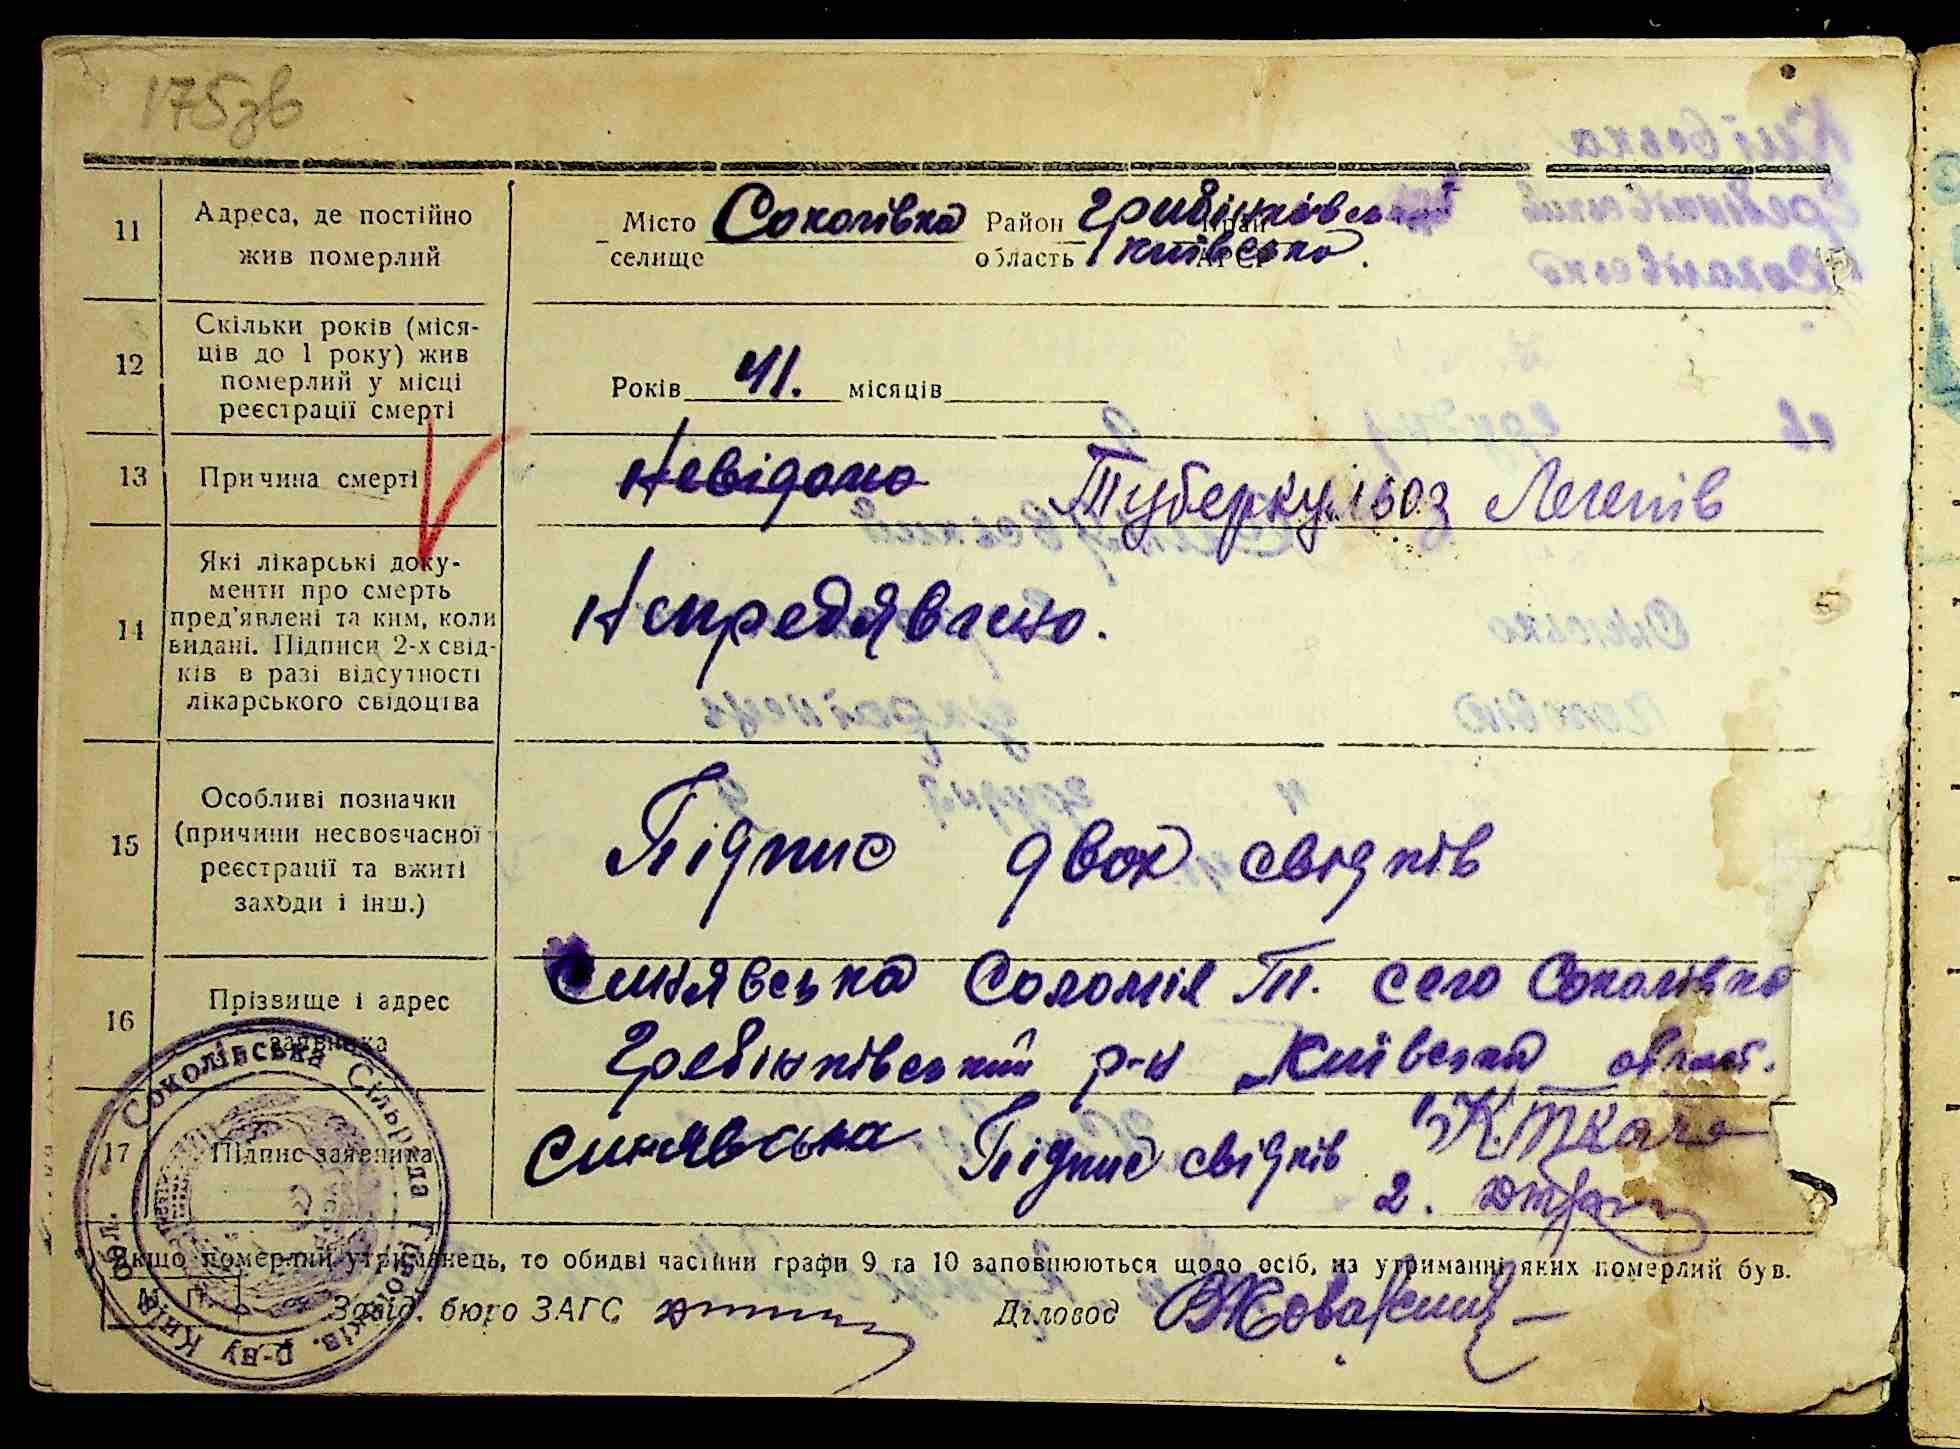 175зв
11 Адреса, де постійно жив померлий
Місто селище Соколівка Район Гребінківський область Київська.
12 Скільки років (міся-
ців до 1 року) жив
померлий у місці
реєстрації смерті
Років 41. місяців
13 Причина смерті
Невідомо Туберкульоз Легенів
14 Які лікарські доку-
менти про смерть
пред'явлені та ким, коли
видані. Підписи 2-х свід-
ків в разі відсутності
лікарського свідоцтва
Непредявлено.
15 Особливі позначки
(причини несвоєчасної
реєстрації та вжиті
заходи і інш.)
Підпис двох свідків
16 Прізвище і адрес
заявника
Синявська Соломія Т. село Соколівка
Гребінківський р-н Київська област.
17 Підпис заявника
Синявська Підпис свідків 1) К. Ткач
2.
Якщо померлий утриманець, то обидві частини графи 9 та 10 заповнюються щодо осіб, на утриманні яких померлий був.
М. П.
Завід. бюро ЗАГС
Діловод
Соколівська Сільрада р-ну Київ обл.